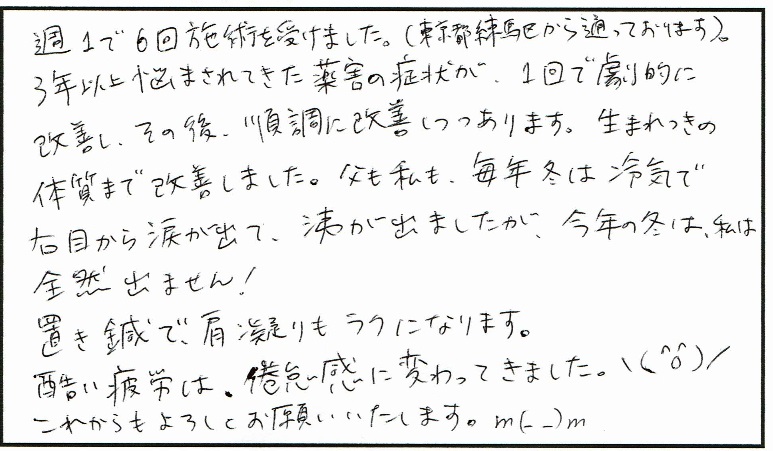 週1で6回施術を受けました。(東京都練馬区から通っております)。
3年以上悩まされてきた薬害の症状が、1回で劇的に
改善し、その後、順調に改善しつつあります。生まれつきの
体質まで改善しました。父も私も、毎年冬は冷気で
右目から涙が出て、洟が出ましたが、今年の冬は、私は
全然出ません!
置き鍼で、肩凝りもラクになります。
酷い疲労は、倦怠感に変わってきました。\(^o^)/
これからもよろしくお願いいたします。m(_ _)m